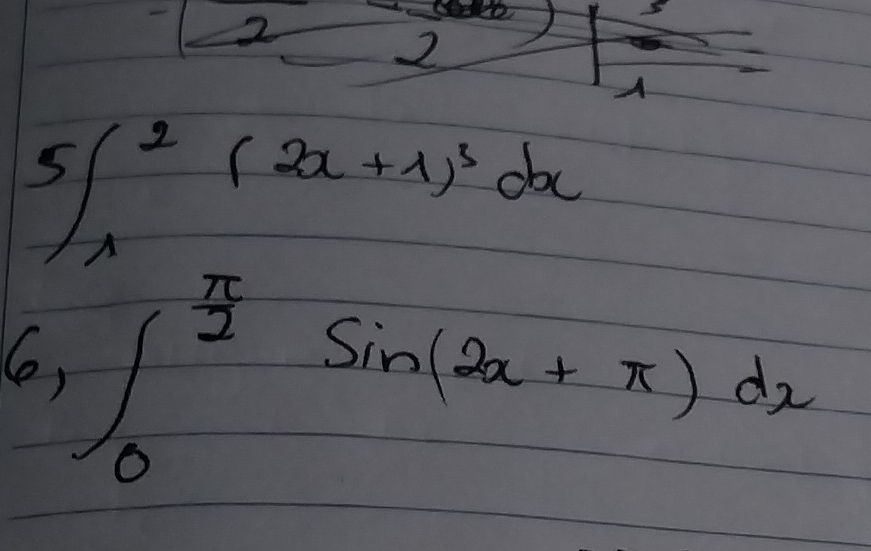 2 2 1
5 ∫₁² (2x + 1)³ dx
6, ∫₀^(π/2) Sin(2x + π) dx